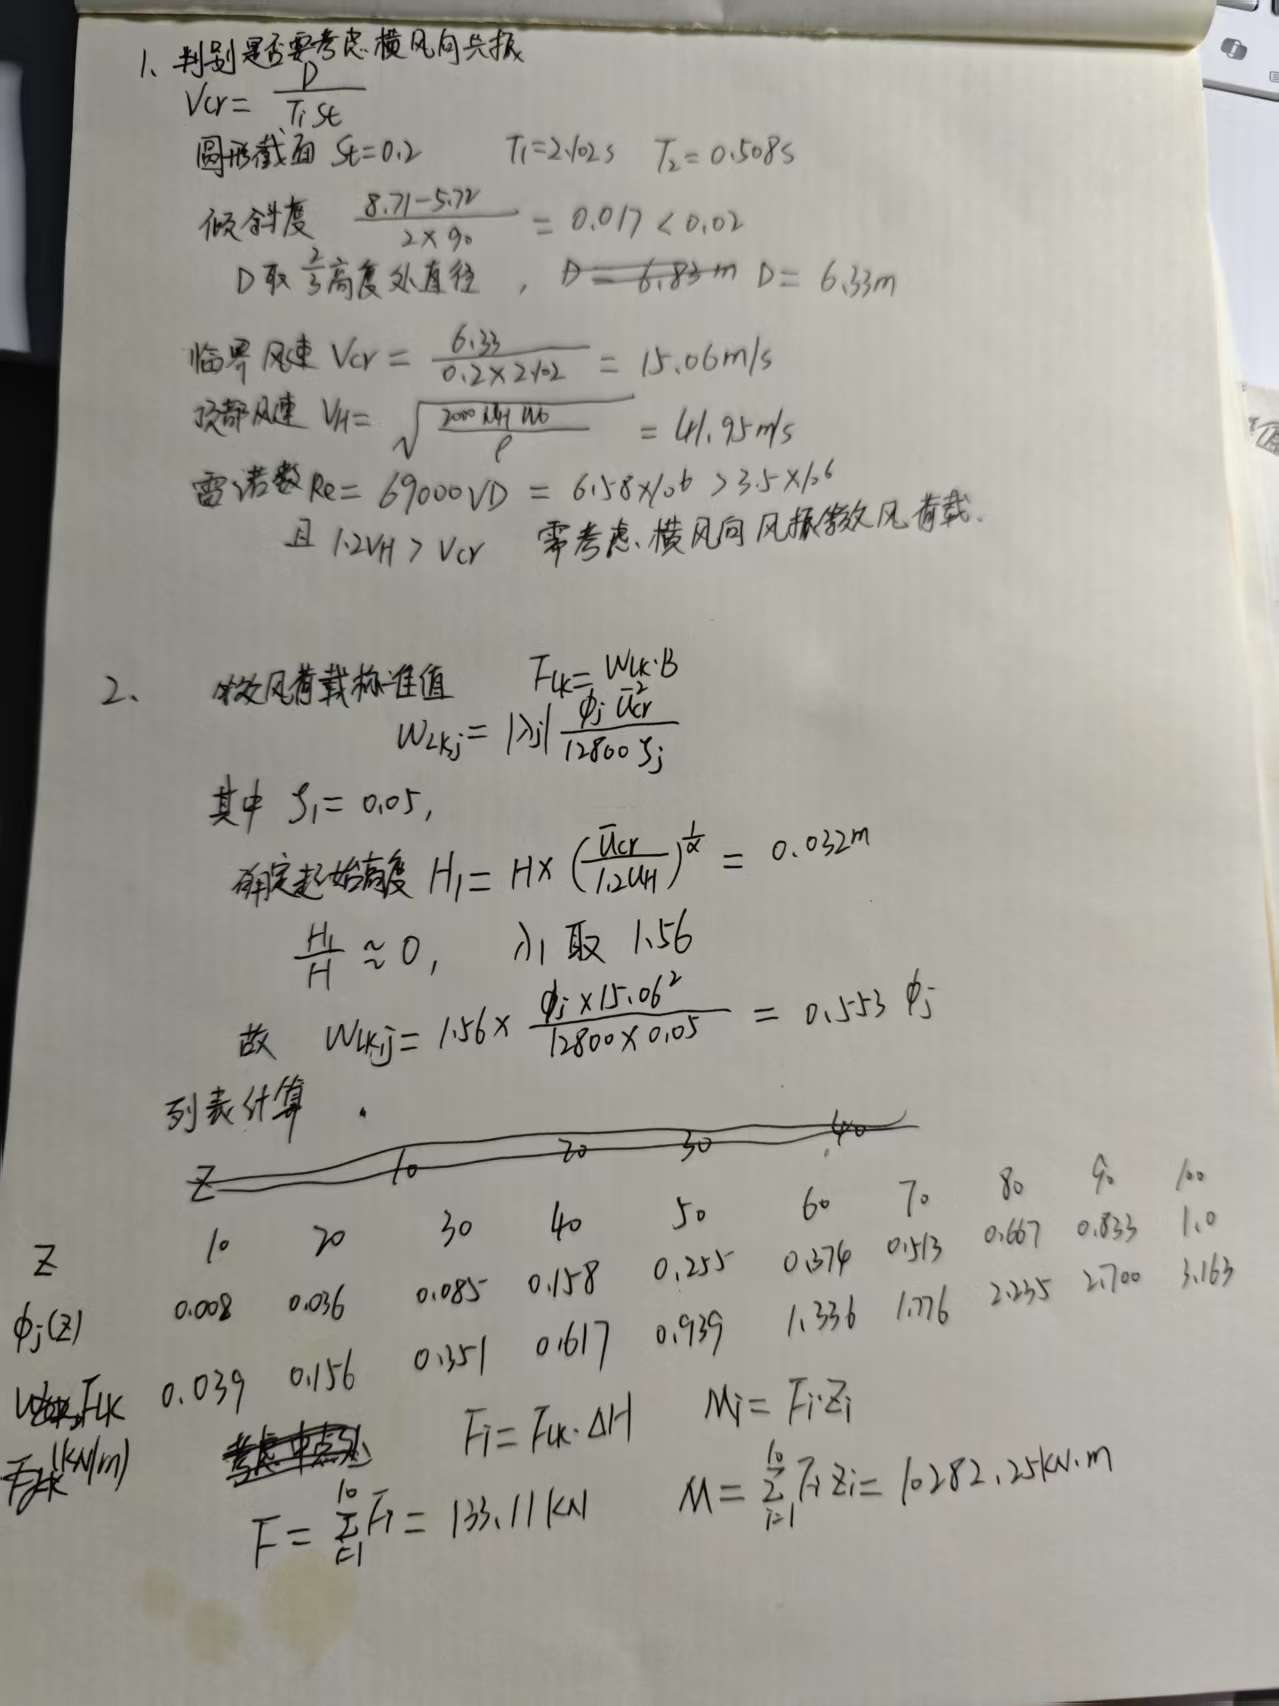 1、判别是否要考虑横风向共振
Vcr = D / (T₁ St)
圆形截面 St=0.2 T₁=2.102s T₂=0.508s
倾斜度 (8.71-5.72) / (2×90) = 0.017 < 0.02
D取 2/3 高度处直径, D = 6.83m D = 6.33m
临界风速 Vcr = 6.33 / (0.2×2.102) = 15.06m/s
顶部风速 VH = √(2000 μH W0 / ρ) = 41.95m/s
雷诺数 Re = 69000VD = 6.58×10⁶ > 3.5×10⁶
且 1.2VH > Vcr 需考虑横风向风振等效风荷载.
2、 等效风荷载标准值 FLK = WLK·B
WLKj = |λj| φj ūcr² / (12800 ζj)
其中 ζ₁ = 0.05,
确定起始高度 H₁ = H × (ūcr / 1.2UH)^(1/α) = 0.032m
H₁/H ≈ 0, λ₁ 取 1.56
故 WLKj = 1.56 × φj × 15.06² / (12800×0.05) = 0.553 φj
列表计算
Z 10 20 30 40
Z 10 20 30 40 50 60 70 80 90 100
φj(Z) 0.008 0.036 0.085 0.158 0.255 0.374 0.513 0.667 0.833 1.0
FLK 0.039 0.156 0.351 0.617 0.939 1.336 1.776 2.235 2.700 3.163
(kN/m) Fi = FLK·ΔH Mi = Fi·Zi
F = Σ(i=1→10) Fi = 133.11kN M = Σ(i=1→10) Fi Zi = 10282.25kN·m